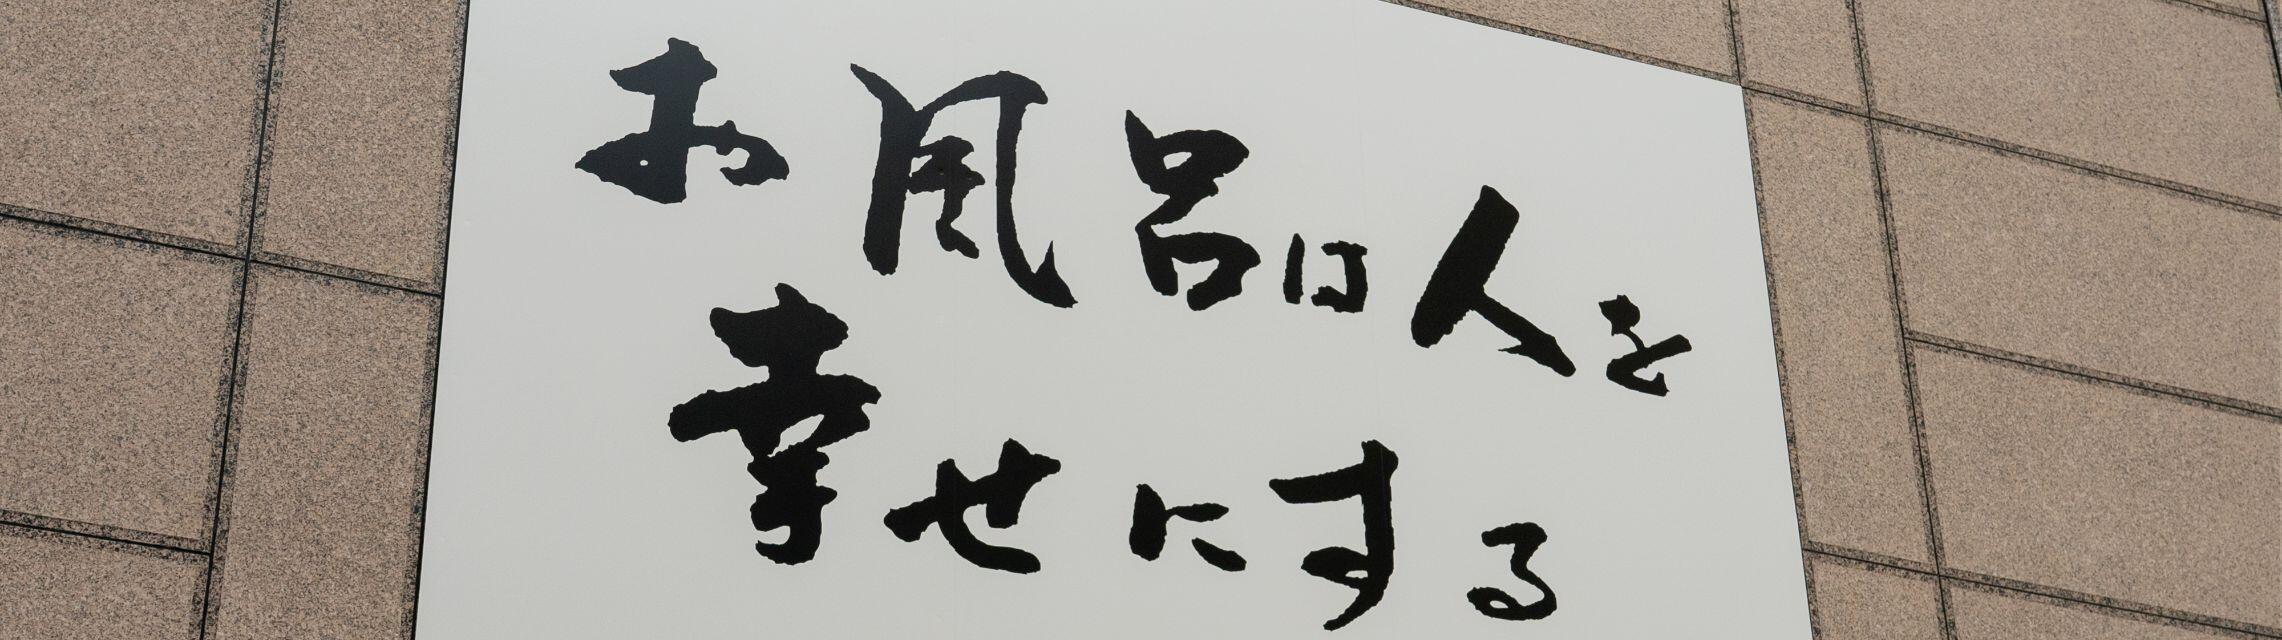 お風呂は人を
幸せにする